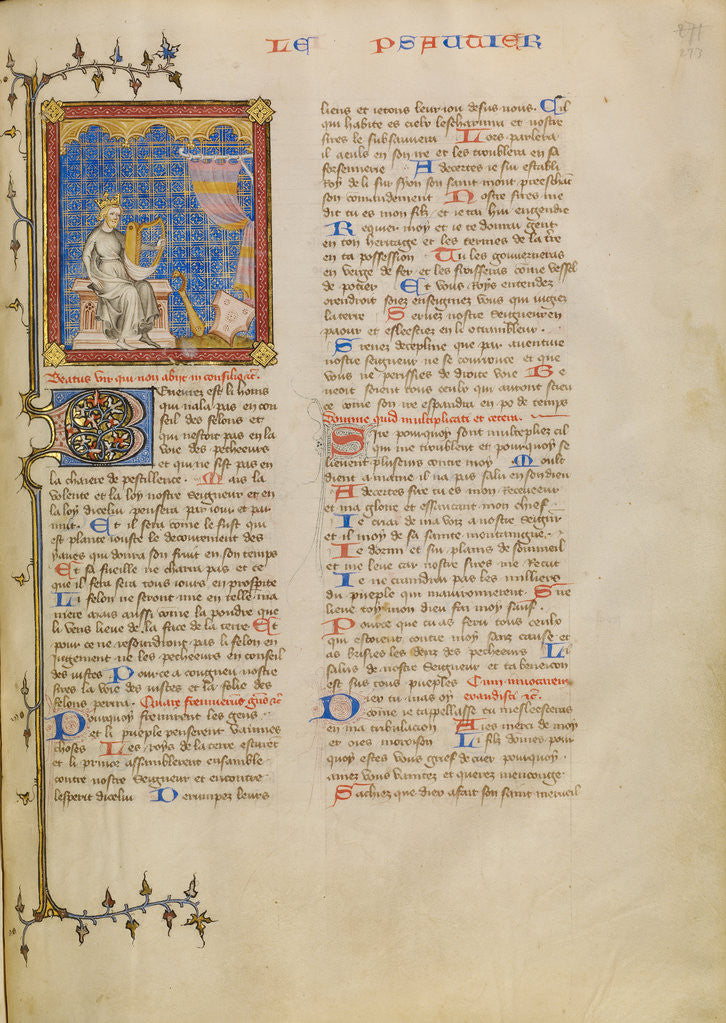 LE PSAUTIER
271
273
Beatus vir qui non abijt in consilio etc.
Beneurez est li homs
qui nala pas en con
seil des felons et
qui nestoit pas en la
voie des pecheeurs
et qui ne sist pas en
la chaiere de pestillence. Mais la
volente et la loy nostre Seigneur et en
la loy dicelui pensera par iour et par
nuit. Et il sera come le fust qui
est plante iouste le decourement des
yaues qui donra son fruit en son temps
Et sa fueille ne charra pas et ce
que il fera sera tous iours en prosperite
Li felon ne seront mie en telle ma
niere mais aussi come la poudre que
li vens lieue de la face de la terre Et
pour ce ne resourdront pas li felon en
iugement ne les pecheeurs en conseil
des iustes Pource a congneu nostre
sires la voie des iustes et la felie des
felons perira. Quare fremuerunt gentes etc
Pourquoy fremirent les gens
et li pueple penserent vainnes
choses Les roys de la terre esturent
et li prince assemblerent ensamble
contre nostre Seigneur et encontre
lesperit dicelui Derumpez leurs
liens et ietons leur iou desus nous. Cil
qui habite es cielx les escharnira et nostre
sires les subsannera Lors parlera
il a euls en son ire et les troublera en sa
forsennerie Adecertes ie sui establi
roy de li sur syon son saint mont preeschant
son comandement Nostre sires me
dit tu es mon filz et ie tai hui engendre
Requier moy et ie te donrai gent
en ton heritage et les termes de la terre
en ta possession Tu les gouverneras
en verge de fer et les froisseras come vessel
de potier Et vous Roys entendez
orendroit soiez enseigniez vous qui iugiez
la terre Servez nostre Seigneur en
paour et esleesciez en li o trembleur.
Prenez decepline que par aventure
nostre seigneur ne se courrouce et que
vous ne perissies de droite voie Be
neoit soient tous ceulx qui auront
ce come son ire espandra en po de temps
Domine quid multiplicati et cetera.
Sire pourquoy sont multipliez cil
qui me troublent et pourquoy se
lieuent pluseurs contre moy Moult
dient a mame il na pas salu en son dieu
Adecertes sire tu es mon receueeur
et ma gloire et essaucant mon chief
Ie criai de ma voiz a nostre seigneur
et il moy de sa sainte montaingne.
Ie dormi et sui plains de sommeil
et me leve car nostre sires me recut
Ie ne craindrai pas les milliers
du pueple qui mauironnerent Sire
lieue toy mon dieu fai moy sauf.
Pource que tu as feru tous ceulx
qui estoient contre moy sanz cause et
as brisies les denz des pecheeurs Li
salus de nostre Seigneur et ta beneicon
est sus tous pueples Cum invocarem
Diex tu mas oy exaudisti etc.
come ie tapellasse tu mesleescas
en ma tribulacion Aies merci de moy
et oies moroison Li filz domes pour
quoy estes vous grief de cuer pourquoy
amez vous vanitez et querez menconge
Sachiez que diex a fait son saint merveil